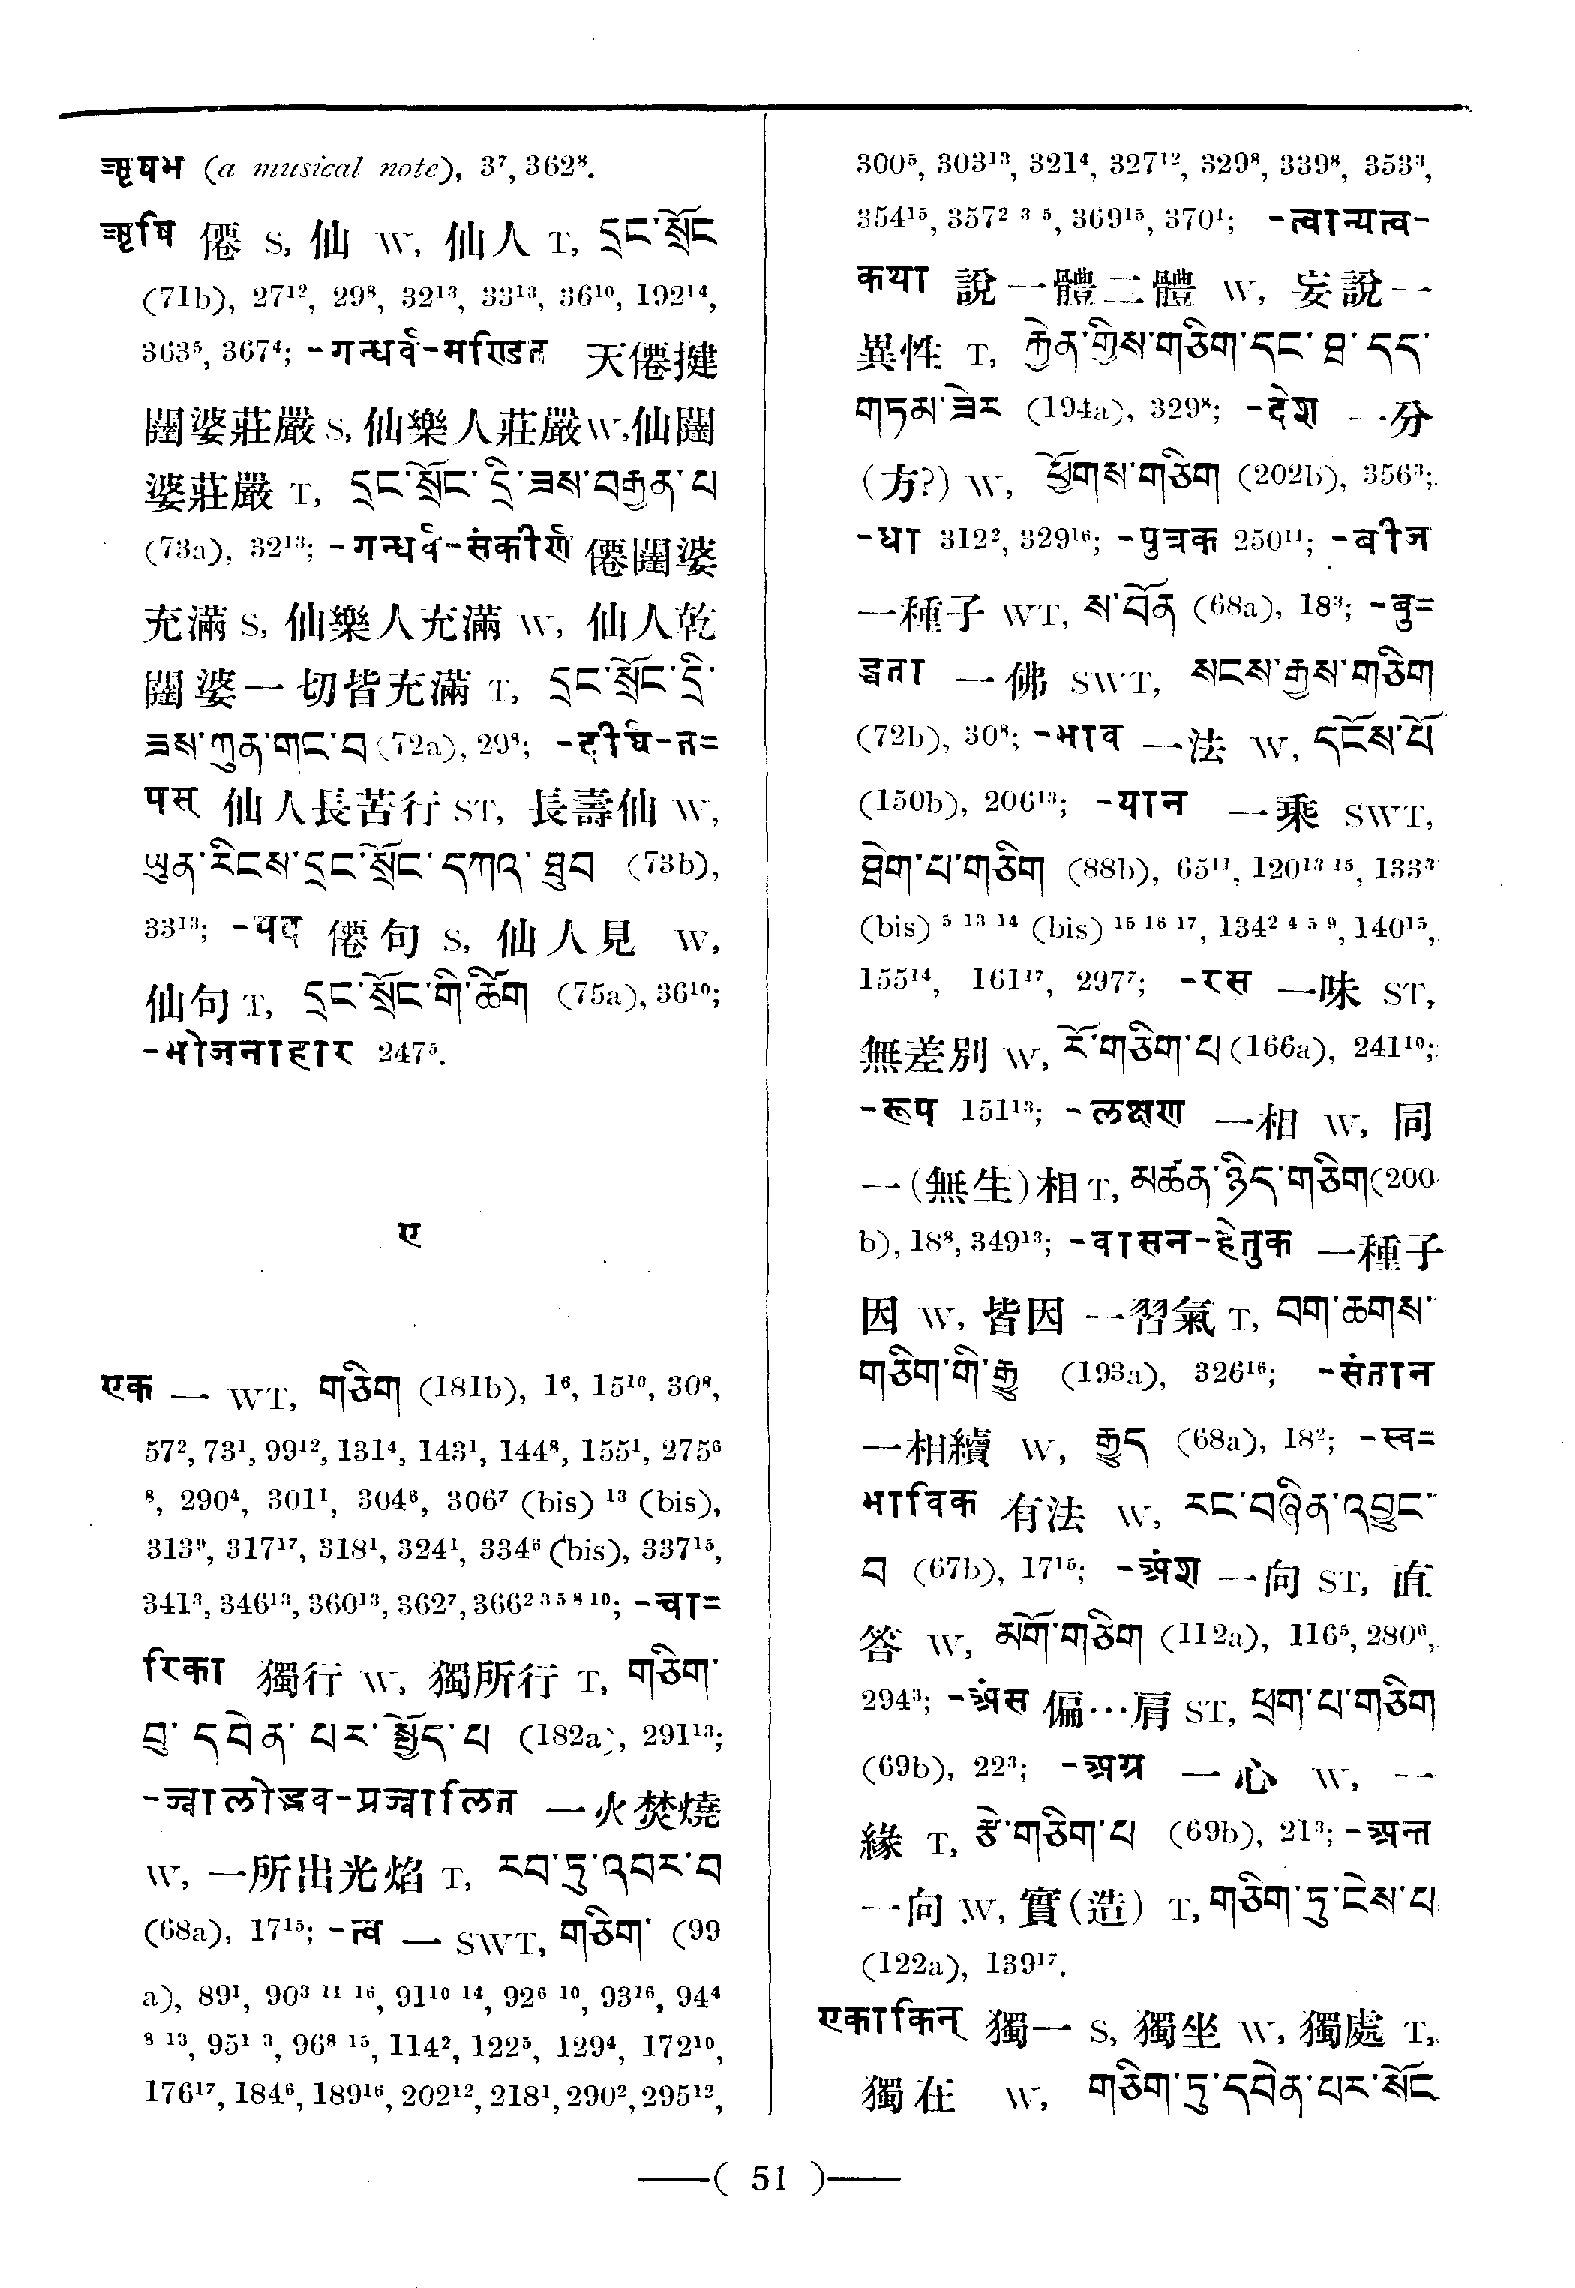 ऋषभ (a musical note), 3⁷, 362⁸.
ऋषि 僊 S, 仙 W, 仙人 T, དྲང་སྲོང
(71b), 27¹², 29⁸, 32¹³, 33¹³, 36¹⁰, 192¹⁴,
363⁵, 367⁴; -गन्धर्व-मण्डित 天僊揵
闥婆莊嚴 S, 仙樂人莊嚴 W, 仙闥
婆莊嚴 T, དྲང་སྲོང་དྲི་ཟས་བརྒྱན་པ
(73a), 32¹³; -गन्धर्व-संकीर्ण 僊闥婆
充滿 S, 仙樂人充滿 W, 仙人乾
闥婆一切皆充滿 T, དྲང་སྲོང་དྲི་
ཟས་ཀུན་གང་བ (72a), 29⁸; -दीर्घ-त=
पस् 仙人長苦行 ST, 長壽仙 W,
ཡུན་རིངས་དྲང་སྲོང་དཀའ་ཐུབ (73b),
33¹³; -पद 僊句 S, 仙人見 W,
仙句 T, དྲང་སྲོང་གི་ཚིག (75a), 36¹⁰;
-भोजनाहार 247⁵.
ए
एक 一 WT, གཅིག (181b), 1⁶, 15¹⁰, 30⁸,
57², 73¹, 99¹², 131⁴, 143¹, 144⁸, 155¹, 275⁶
⁸, 290⁴, 301¹, 304⁶, 306⁷ (bis) ¹³ (bis),
313⁹, 317¹⁷, 318¹, 324¹, 334⁶ (bis), 337¹⁵,
341³, 346¹³, 360¹³, 362⁷, 366² ³ ⁵ ⁸ ¹⁰; -चा=
रिका 獨行 W, 獨所行 T, གཅིག་
བུ་དབེན་པར་སྤྱོད་པ (182a), 291¹³;
-ज्वालोद्भव-प्रज्वालित 一火焚燒
W, 一所出光焰 T, རབ་ཏུ་འབར་བ
(68a), 17¹⁵; -त्व 一 SWT, གཅིག་ (99
a), 89¹, 90³ ¹¹ ¹⁶, 91¹⁰ ¹⁴, 92⁶ ¹⁰, 93¹⁶, 94⁴
⁸ ¹³, 95¹ ³, 96⁸ ¹⁵, 114², 122⁵, 129⁴, 172¹⁰,
176¹⁷, 184⁶, 189¹⁶, 202¹², 218¹, 290², 295¹²,
300⁵, 303¹³, 321⁴, 327¹², 329⁸, 339⁸, 353³,
354¹⁵, 357² ³ ⁵, 369¹⁵, 370¹; -त्वान्यत्व-
कथा 說一體二體 W, 妄說一
異性 T, རྐྱེན་གྱིས་གཅིག་དང་ཐ་དད་
གཏམ་ཟེར (194a), 329⁸; -देश 一分
(方?) W, ཕྱོགས་གཅིག (202b), 356³;
-धा 312², 329¹⁶; -पुत्रक 250¹¹; -बीज
一種子 WT, ས་བོན (68a), 18³; -बु=
द्धता 一佛 SWT, སངས་རྒྱས་གཅིག
(72b), 30⁸; -भाव 一法 W, དངོས་པོ
(150b), 206¹³; -यान 一乘 SWT,
ཐེག་པ་གཅིག (88b), 65¹¹, 120¹³ ¹⁵, 133³
(bis) ⁵ ¹³ ¹⁴ (bis) ¹⁵ ¹⁶ ¹⁷, 134² ⁴ ⁵ ⁹, 140¹⁵,
155¹⁴, 161¹⁷, 297⁷; -रस 一味 ST,
無差別 W, རོ་གཅིག་པ (166a), 241¹⁰;
-रूप 151¹³; -लक्षण 一相 W, 同
一(無生)相 T, མཚན་ཉིད་གཅིག (200
b), 18⁸, 349¹³; -वासन-हेतुक 一種子
因 W, 皆因一習氣 T, བག་ཆགས་
གཅིག་གི་རྒྱུ (193a), 326¹⁶; -संतान
一相續 W, རྒྱུད (68a), 18²; -स्व=
भाविक 有法 W, རང་བཞིན་འབྱུང་
བ (67b), 17¹⁵; -अंश 一向 ST, 直
答 W, མགོ་གཅིག (112a), 116⁵, 280⁶,
294³; -अंस 偏…肩 ST, ཕྲག་པ་གཅིག
(69b), 22³; -अग्र 一心 W, 一
緣 T, རྩེ་གཅིག་པ (69b), 21³; -अन्त
一向 W, 實(造) T, གཅིག་ཏུ་ངེས་པ
(122a), 139¹⁷.
एकाकिन् 獨一 S, 獨坐 W, 獨處 T,
獨在 W, གཅིག་ཏུ་དབེན་པར་སོང
—( 51 )—